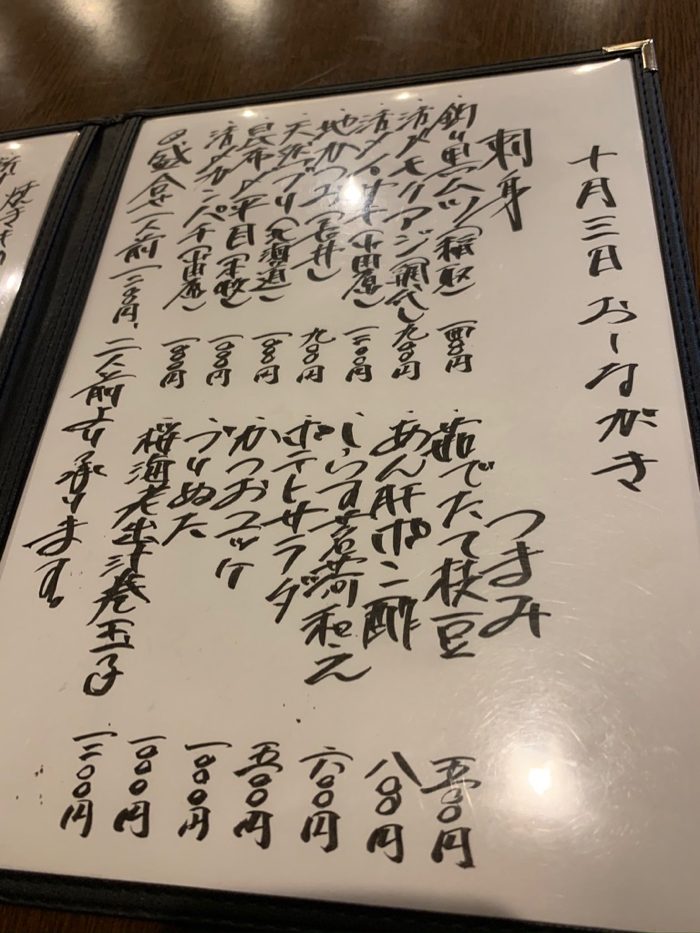 十月三日 おしながき
刺身
釣り黒ムツ（稲取） 一四〇〇円
活〆モリアジ 九〇〇円
活〆（小田原） 一二〇〇円
地かつお 九〇〇円
天然ブリ（北海道） 一〇〇〇円
昆布〆平目 一〇〇〇円
活〆カンパチ（小田原） 一一〇〇円
盛合せ一人前 円、二人前より承ります。
つまみ
茹でたて枝豆 五〇〇円
あん肝ポン酢 八〇〇円
しらす茗荷和え 六〇〇円
ポテトサラダ 五〇〇円
かつおユッケ 一〇〇〇円
ぶりぬた 一〇〇〇円
桜海老出汁巻玉子 一二〇〇円
焼き